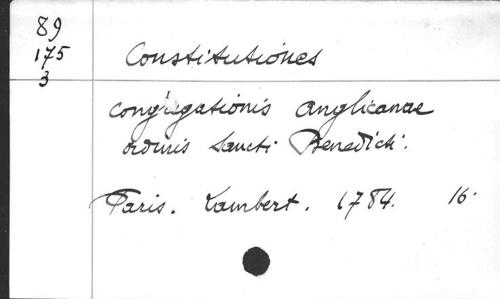 89
175
3
Constitutiones
congregationis anglicanae
ordinis Sancti Benedicti.
Paris. Lambert. 1784. 16.